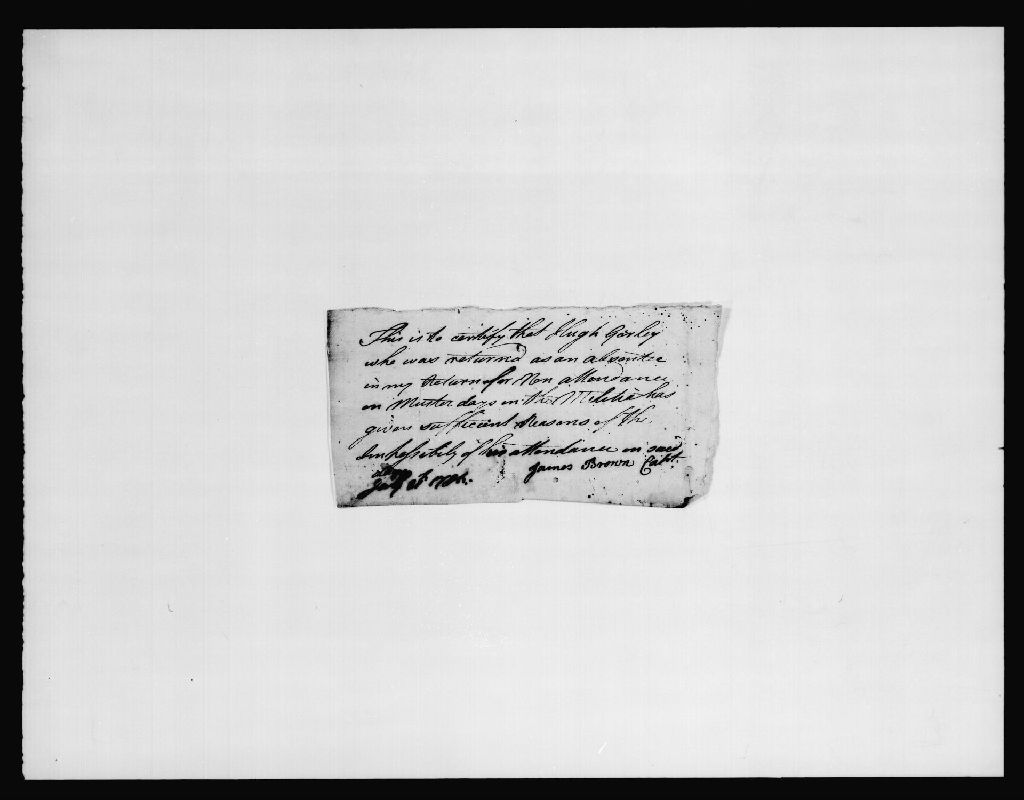 This is to certify that Hugh
who was returned as an absentee
in my Return for Non attendance
on Muster days in the Militia has
given sufficient Reasons of the
Impossibily of his attendance on said
days James Brown Capt.